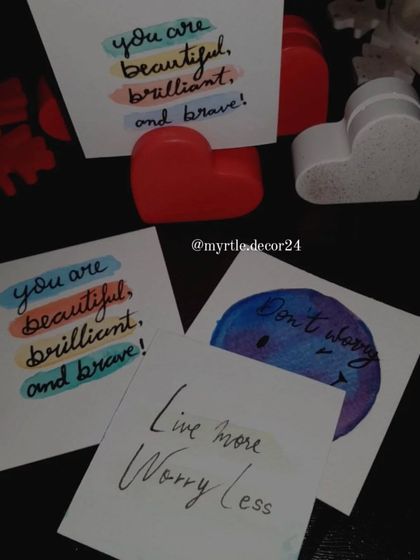 you are
beautiful,
brilliant,
and brave!
@myrtle.decor24
you are
beautiful,
brilliant,
and brave!
Don't worry
Live more
Worry Less